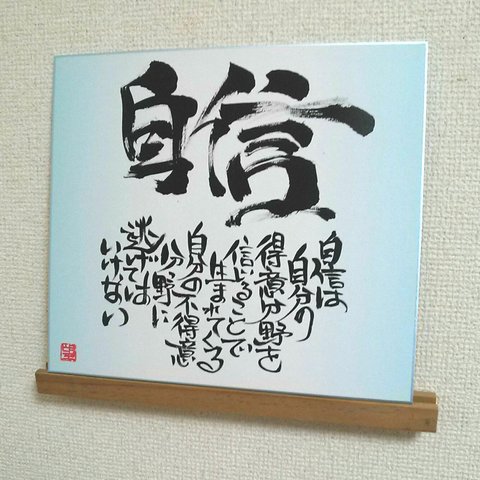 自信
自信は
自分の
得意分野を
信じることで
生まれてくる
自分の不得意
分野に
逃げては
いけない